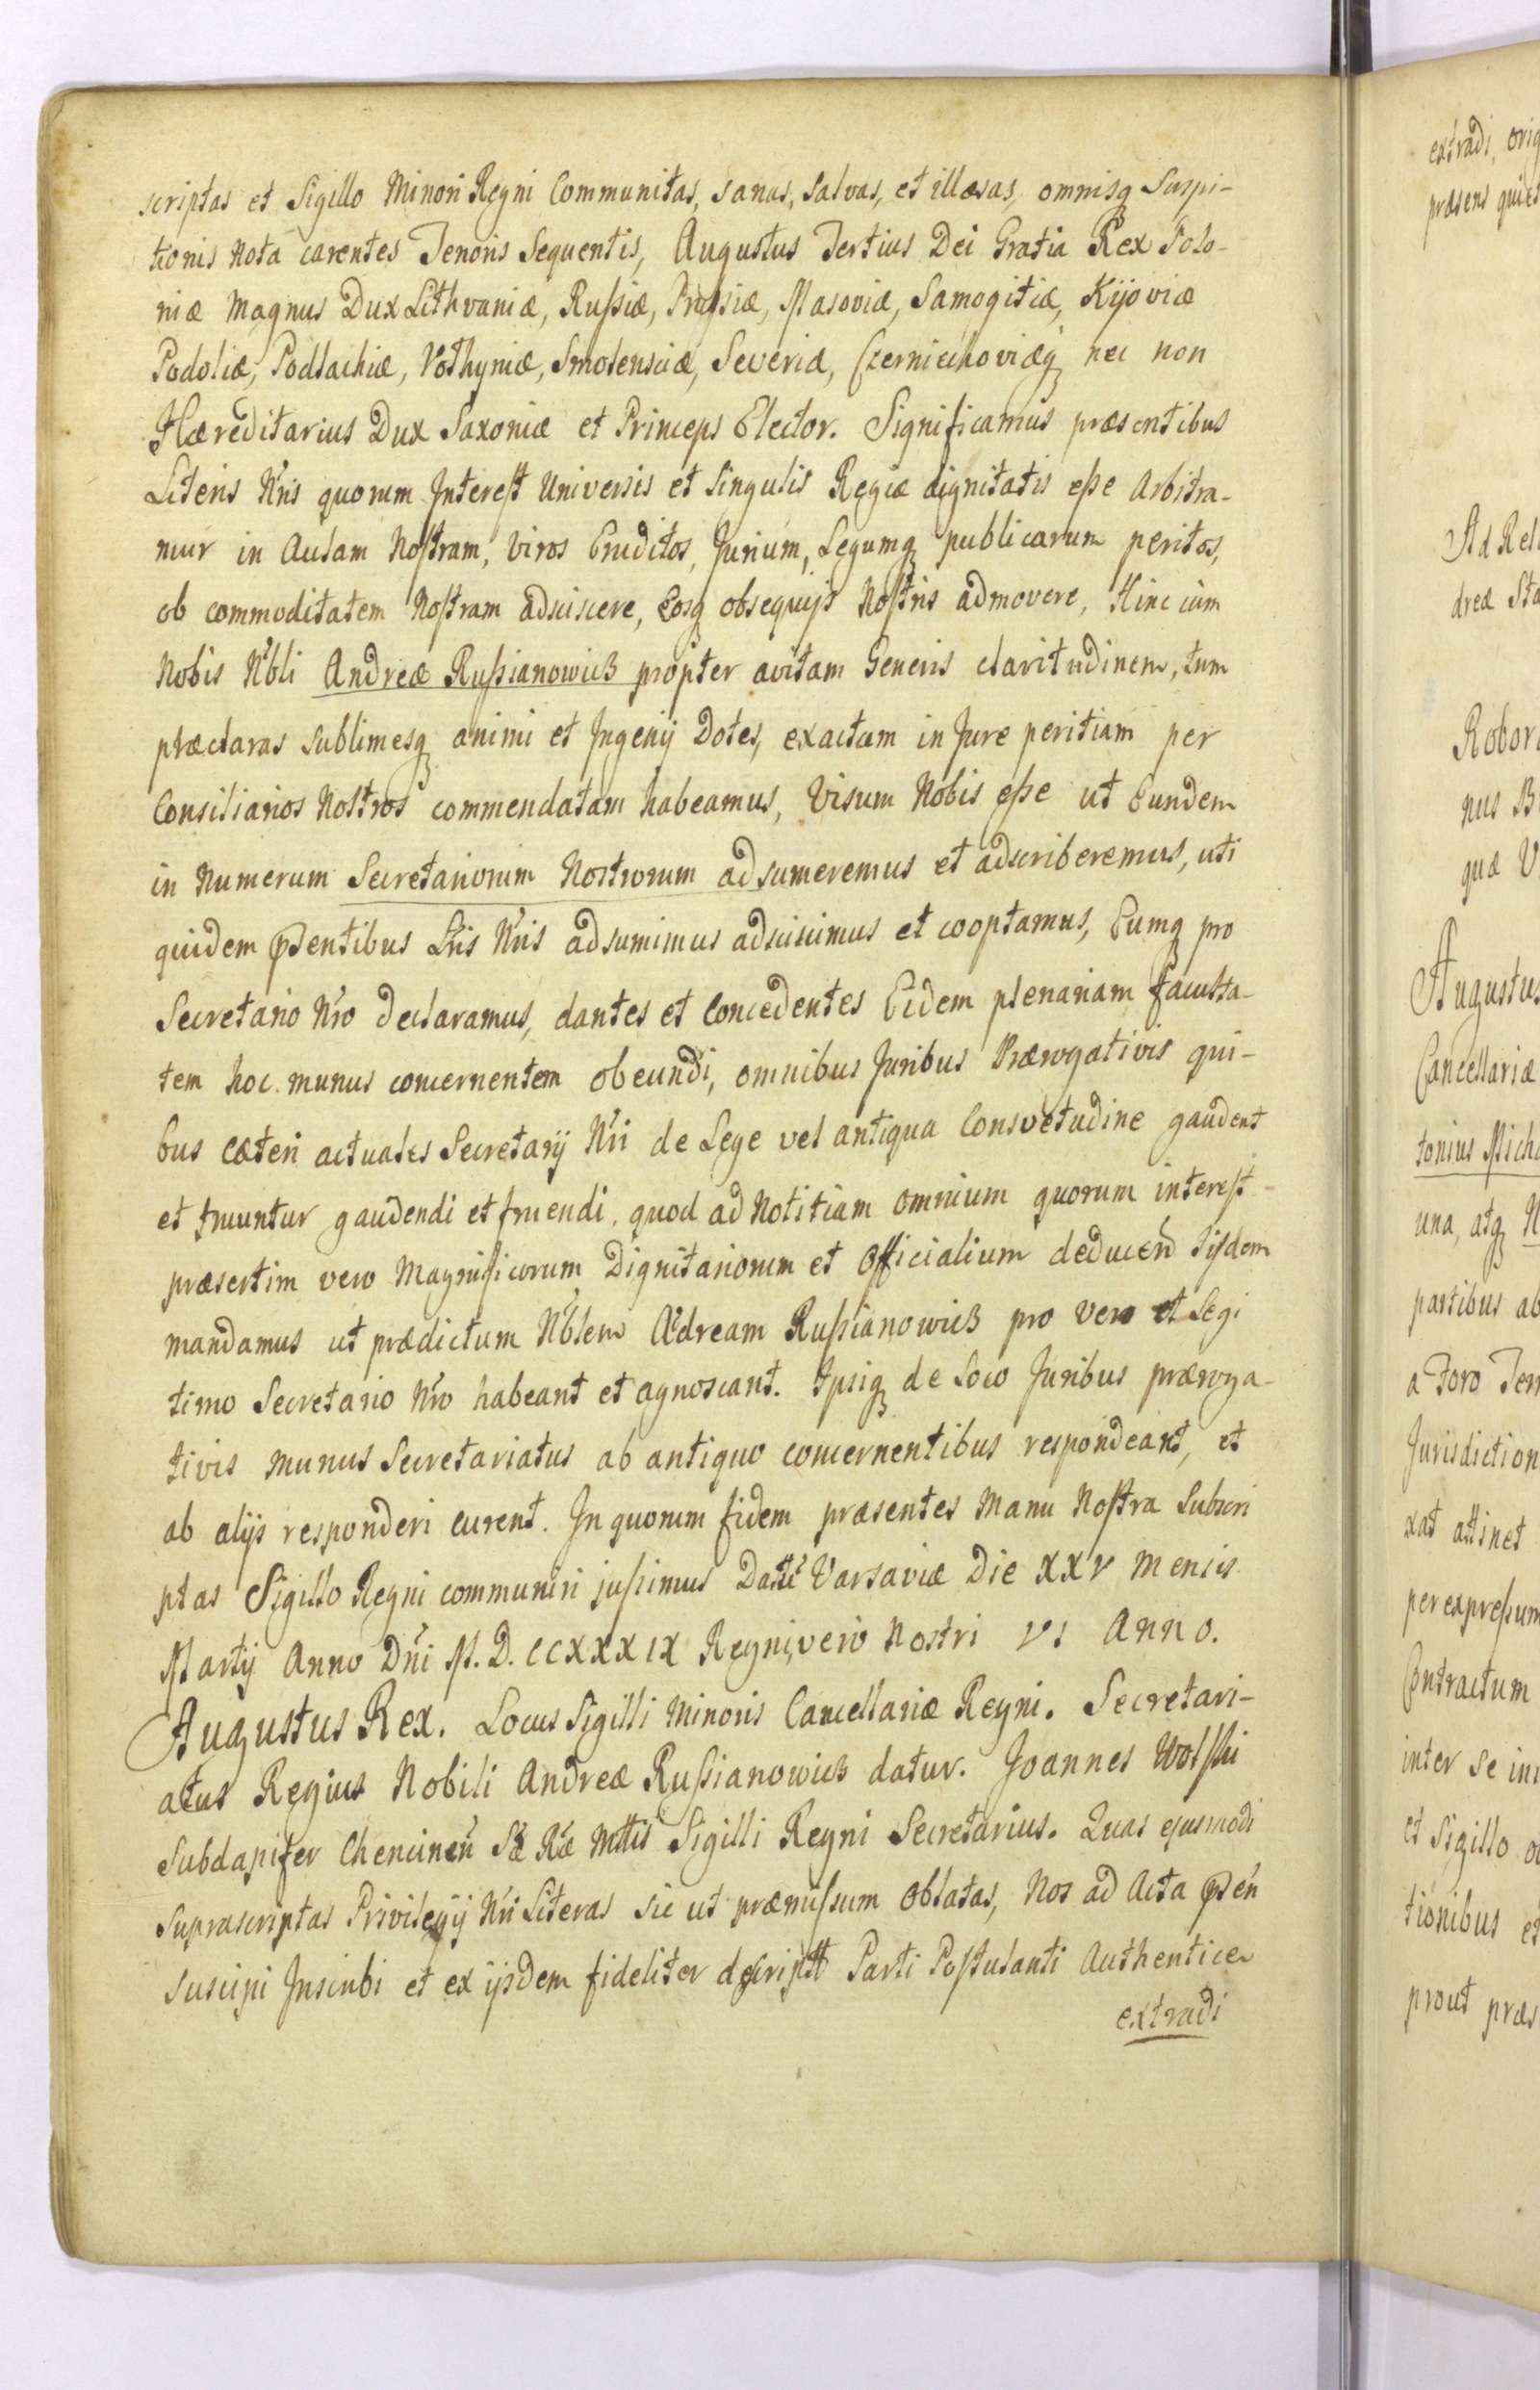 scriptas et Sigillo Minori Regni Communitas, sanas, salvas, et illæsas, omnisq Suspi-
tionis Nota carentes Tenoris Sequentis, Augustus Tertius Dei Gratia Rex Polo-
niæ Magnus Dux Lithvaniæ, Rußiæ, Prußiæ, Masoviæ, Samogitiæ, Kijoviæ
Podoliæ, Podlachiæ, Volhyniæ, Smolensciæ, Severiæ, Czerniechoviæq nec non
Hæreditarius Dux Saxoniæ et Princeps Elector. Significamus præsentibus
Literis Nris quorum Interest Universis et Singulis Regiæ dignitatis eße Arbitra-
mur in Aulam Nostram, viros Eruditos, Jurium, Legumq publicarum peritos,
ob commoditatem Nostram adsciscere, Eosq obsequijs Nostris admovere, Hinc cum
Nobis Nbli Andreæ Rußianowicz propter avitam Generis claritudinem, tum
præclaras sublimesq animi et Ingenij Dotes, exactam in Jure peritiam per
Consiliarios Nostros commendatam habeamus, Visum Nobis eße ut Eundem
in Numerum Secretariorum Nostrorum adsumeremus et adscriberemus, uti
quidem pdentibus Lris Nris adsumimus adscicimus et cooptamus, Eumq pro
Secretario Nro declaramus, dantes et Concedentes Eidem plenariam faculta-
tem hoc munus concernentem obeundi, omnibus Juribus Prærogativis qui-
bus Cæteri actuales Secretarij Nri de Lege vel antiqua Consvetudine gaudent
et fruuntur gaudendi et fruendi, quod ad Notitiam omnium quorum interest-
præsertim vero Magnificorum Dignitariorum et Officialium deducen Iisdem
mandamus ut prædictum Nblem Adream Rußianowicz pro vero et Legi
timo Secretario Nro habeant et agnoscant. Ipsiq de Loco Juribus præroga-
tivis munus Secretariatus ab antiquo concernentibus respondeant, et
ab alijs responderi curent. In quorum fidem præsentes Manu Nostra Subscri
ptas Sigillo Regni communiri jußimus Datt Varsaviæ Die XXV Mensis
Martij Anno Dni M. D. CCXXXIX Regni vero Nostri VI Anno.
Augustus Rex. Locus Sigilli Minoris Cancellariæ Regni. Secretari-
atus Regius Nobili Andreæ Rußianowicz datur. Joannes Wolski
Subdapifer Chencinen Sæ Ræ Mttis Sigilli Regni Secretarius. Quas ejusmodi
Suprascriptas Privilegij Nri Literas sic ut præmissum Oblatas, Nos ad Acta pden
suscipi Inscribi et ex ijsdem fideliter descriptt Parti Postulanti Authentice
extradi
extradi, orig
præsens quiet
Ad Rel
dreæ Sta
Robor
nus B
quæ V
Augustus
Cancellariæ
tonius Mich
una, atq N
partibus ab
a Foro Ter
Jurisdiction
xat attinet
per expreßum
Contractum
inter se in
et Sigillo o
tionibus et
prout præs